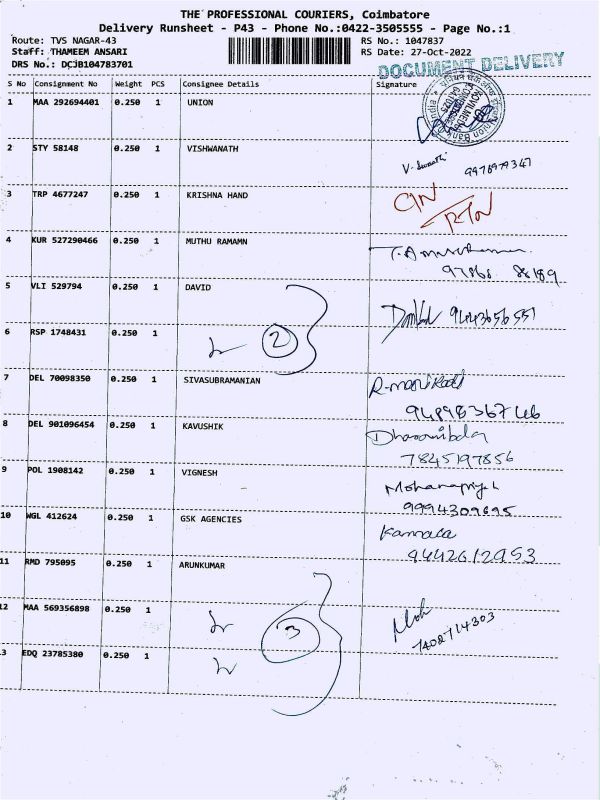 THE PROFESSIONAL COURIERS, Coimbatore
Delivery Runsheet - P43 - Phone No.:0422-3505555 - Page No.:1
Route: TVS NAGAR-43 RS No.: 1047837
Staff: THAMEEM ANSARI RS Date: 27-Oct-2022
DRS No.: DCJB104783701 DOCUMENT DELIVERY
S No Consignment No Weight PCS Consignee Details Signature
1 MAA 292694401 0.250 1 UNION
2 STY 58148 0.250 1 VISHWANATH
9978979347
3 TRP 4677247 0.250 1 KRISHNA HAND
4 KUR 527290466 0.250 1 MUTHU RAMAMN
97868 88189
5 VLI 529794 0.250 1 DAVID
9443656551
6 RSP 1748431 0.250 1 2
7 DEL 70098350 0.250 1 SIVASUBRAMANIAN
9489836746
8 DEL 901096454 0.250 1 KAVUSHIK
7845197856
9 POL 1908142 0.250 1 VIGNESH
9994309695
10 WGL 412624 0.250 1 GSK AGENCIES Kamala
9442612953
11 RMD 795095 0.250 1 ARUNKUMAR
12 MAA 569356898 0.250 1 3
7402714303
13 EDQ 23785380 0.250 1